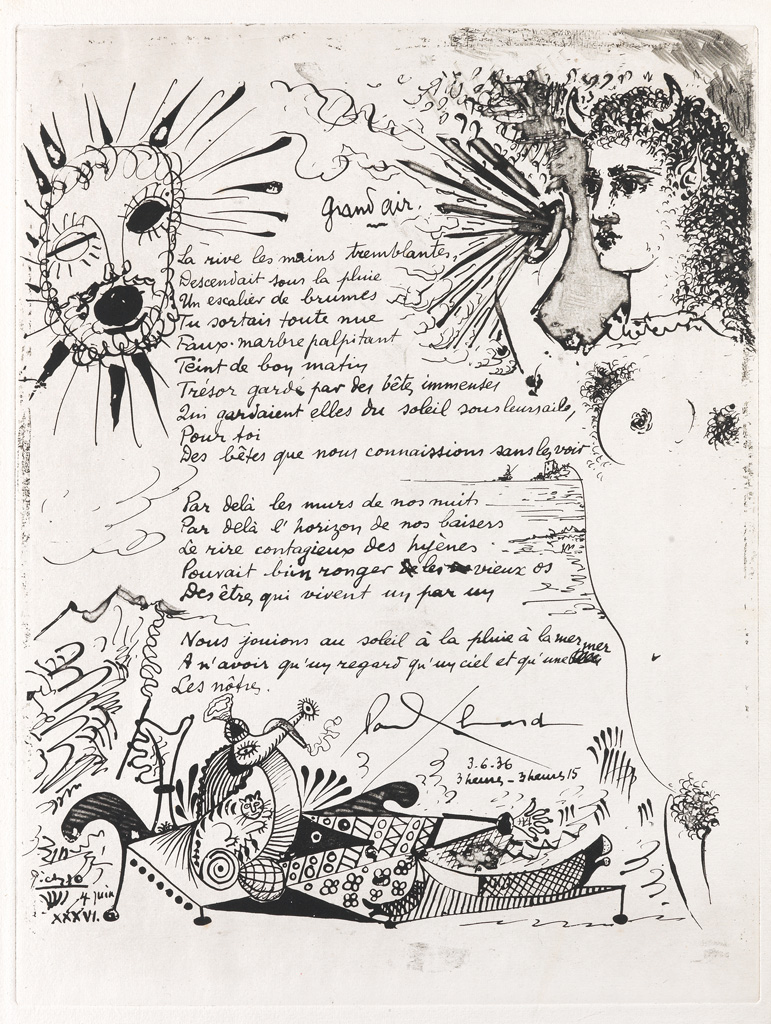 grand air
La rive les mains tremblantes,
Descendait sous la pluie
Un escalier de brumes
Tu sortais toute nue
Faux-marbre palpitant
Teint de bon matin
Trésor gardé par des bêtes immenses
Qui gardaient elles du soleil sous leurs ailes,
Pour toi
Des bêtes que nous connaissions sans les voir
Par delà les murs de nos nuits
Par delà l'horizon de nos baisers
Le rire contagieux des hyènes
Pouvait bien ronger les vieux os
Des êtres qui vivent un par un
Nous jouions au soleil à la pluie à la mer
A n'avoir qu'un regard qu'un ciel et qu'une mer
Les nôtres.
Paul Eluard
3.6.36
3 heures – 3 heures 15
Picasso
4 juin
XXXVI.